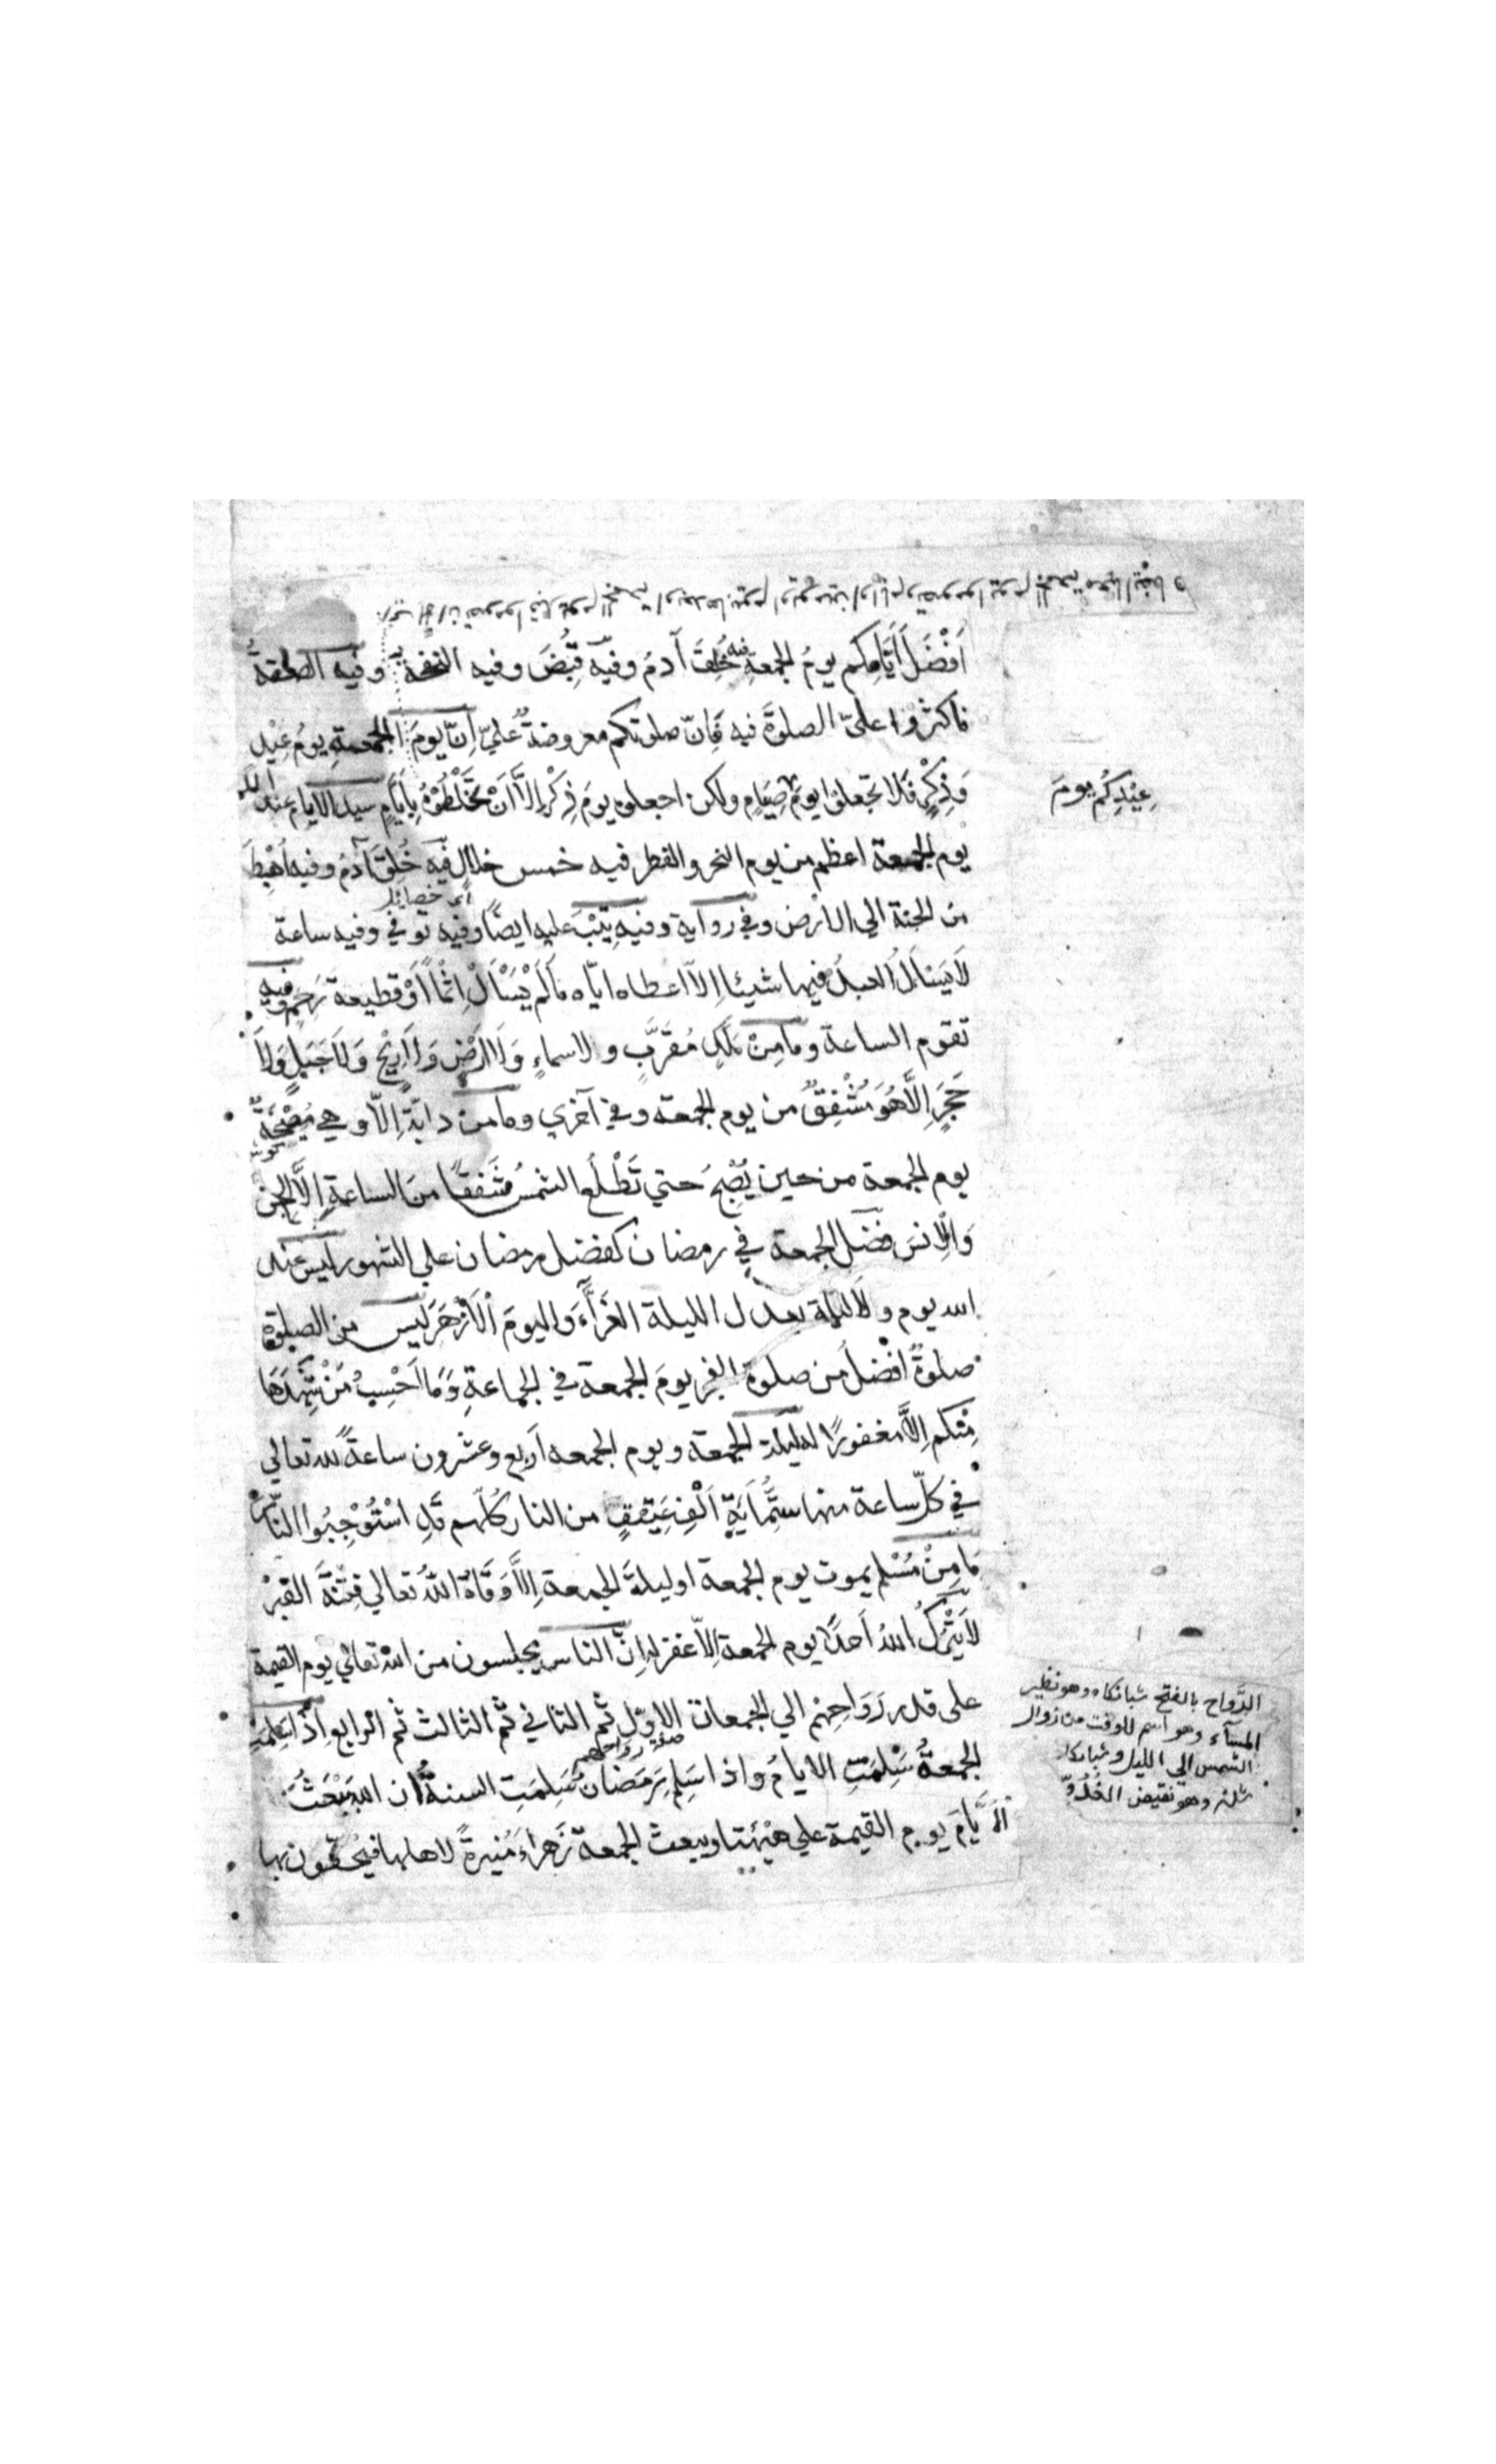 اَفْضَلُ اَيَّامِكم يومُ الجمعةِ فيه خُلِقَ آدمُ وفيه قُبِضَ وفيه النفخة وفيه الصعقةُ
فاكثروا عليّ الصلوةَ فيه فَاِنّ صلوتكم معروضةٌ عليّ اِنّ يومَ الجمعةِ يومُ عِيْدٍ
وَذِكْرٍ فَلا تجعلوا يومَ صِيَامٍ ولكن اجعلوه يومَ ذِكْرٍ اِلاَّ اَنْ تَخْلِطُوْهُ بِاَيَّامٍ سيد الايام عند الله
عِيْدِكُم يومَ
يوم الجمعة اعظم من يوم النحر والفطر فيه خمس خلال فيه خُلِقَ آدمُ وفيه اُهْبِطَ
اي خصايل
من الجنة الي الارض وفي رواية وفيه تِيْبَ عليه ايضًا وفيه توفي وفيه ساعة
لَا يَسْاَلُ العبدُ فيها شيئا اِلاّ اعطاه ايّاه مَا لَمْ يَسْاَلْ اِثْمًا اَوْ قطيعة رَحِمٍ وفيه
تقوم الساعة وما مِنْ مَلَكٍ مُقَرَّبٍ ولا سماءٍ وَلَا اَرْضٍ وَلَا رِيْحٍ وَلَا جَبَلٍ وَلَا
حَجَرٍ اِلاَّ هُوَ مُشْفِقٌ من يوم الجمعة وفي آخري وما من دابّة اِلاّ وهي مُصِيْخَةٌ
يوم الجمعة من حين يُصْبِحُ حتي تَطْلُعَ الشمسُ شَفَقًا من الساعةِ اِلاَّ الجن
وَالْاِنسَ فضل الجمعة في رمضان كفضل رمضان علي الشهور ليس عند
الله يوم ولا ليلة يعدل الليلة الغَرَّاءَ واليومَ الْاَزْهَرَ ليس من الصلوة
صلوةٌ افضلُ من صلوة الفجر يومَ الجمعة في الجماعةِ وَمَا اَحْسِبُ مَنْ شَهِدَهَا
مِنْكم اِلاَّ مغفورًا له ليلة الجمعة ويوم الجمعه اربع وعشرون ساعةً لله تعالي
في كلّ ساعة منها ستُّمِايَةِ اَلْفِ عَتِيْقٍ من النار كُلّهم قَدِ اسْتَوْجَبُوا النَّارَ
مَا مِنْ مُسْلم يموت يوم الجمعة او ليلةَ الجمعة اِلاَّ وَقَاهُ اللهُ تعالي فِتْنَةَ القبْر
لَا يَتْرُكُ اللهُ اَحدًا يوم الجمعة اِلاّ غفر له اِنّ الناس يجلسون من الله تعالي يوم القيمة
على قدر رَوَاحِهِم الي الجمعات الاوّل ثم الثاني ثم الثالث ثم الرابع اذا سَلِمَتِ
الجمعةُ سَلِمَتِ الايامُ واذا سَلِمَ رَمَضانُ سَلِمَتِ السنةُ ان الله يَبْعَثُ
الَايَّامَ يوم القيمة علي هَيْئَتها ويبعث الجمعة زَهراءَ مُنيرةً لاهلها فيَحُفّون بها
الرَّواح بالفتح شبانكاه وهو نظير
المسآء وهو اسم للوقت من زوال
الشمس الي الليل وشبانكاه
شدن وهو نقيض الغُدُوّ